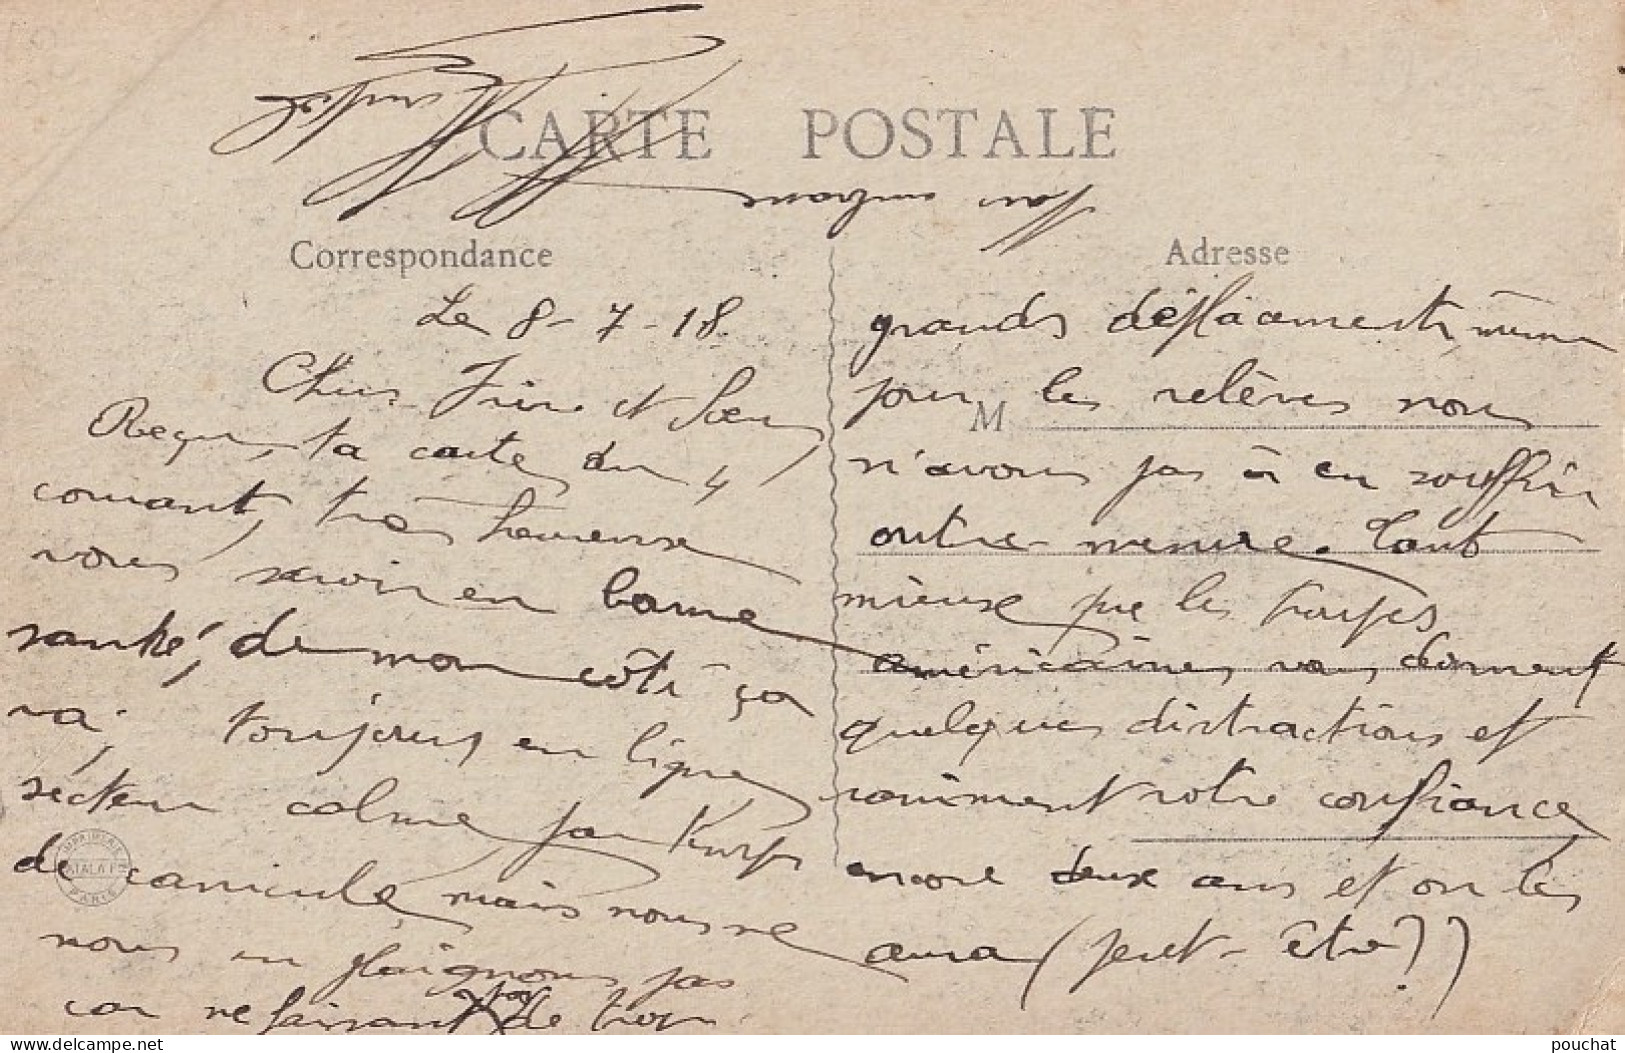 CARTE POSTALE
Correspondance
Le 8-7-18.
Chers Frère et Soeur
Reçu, ta carte du 4
courant, très heureux
vous savoir en bonne
santé, de mon côté ça
va; toujours en ligne
secteur calme par temps
de canicule, mais nous ne
nous en plaignons pas
car ne faisant pas de trop
Adresse
M
grands déplacements, même
pour les relèves nous
n'avons pas à en souffrir
outre-mesure. Tant
mieux que les troupes
américaines vous donnent
quelques distractions et
raniment votre confiance,
encore deux ans et on les
aura (peut-être?)
IMPRIMERIE
CATALA FRES
PARIS
www.delcampe.net
pouchat